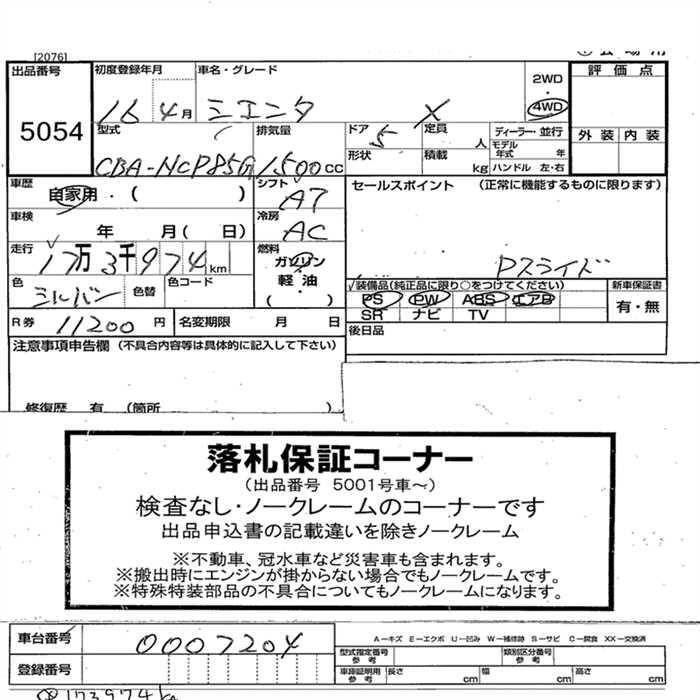 [2076]
出品番号
5054
初度登録年月
16 4月
車名・グレード
シエンタ X
2WD
・
4WD
評価点
外装 内装
型式
CBA-NCP85G
排気量
1500cc
ドア
5
定員
人
形状
積載
kg
ディーラー・並行
モデル年式 年
ハンドル 左・右
車歴
自家用・( )
シフト
AT
セールスポイント (正常に機能するものに限ります)
Pスライド
車検
年 月( 日)
冷房
AC
走行
17万3千974km
燃料
ガソリン
軽油
( )
色
シルバン
色替
色コード
装備品(純正品に限り○をつけてください)
PS PW ABS エアB
SR ナビ TV
新車保証書
有・無
R券 11200円
名変期限 月 日
後日品
注意事項申告欄 (不具合内容等は具体的に記入して下さい)
修復歴 有 (箇所 )
落札保証コーナー
(出品番号 5001号車~)
検査なし・ノークレームのコーナーです
出品申込書の記載違いを除きノークレーム
※不動車、冠水車など災害車も含まれます。
※搬出時にエンジンが掛からない場合でもノークレームです。
※特殊特装部品の不具合についてもノークレームになります。
車台番号
0007204
A-キズ E-エクボ U-凹み W-補修跡 S-サビ C-腐食 XX-交換済
型式指定番号
参考
類別区分番号
参考
登録番号
車庫証明用
参考
長さ cm 幅 cm 高さ cm
173974km